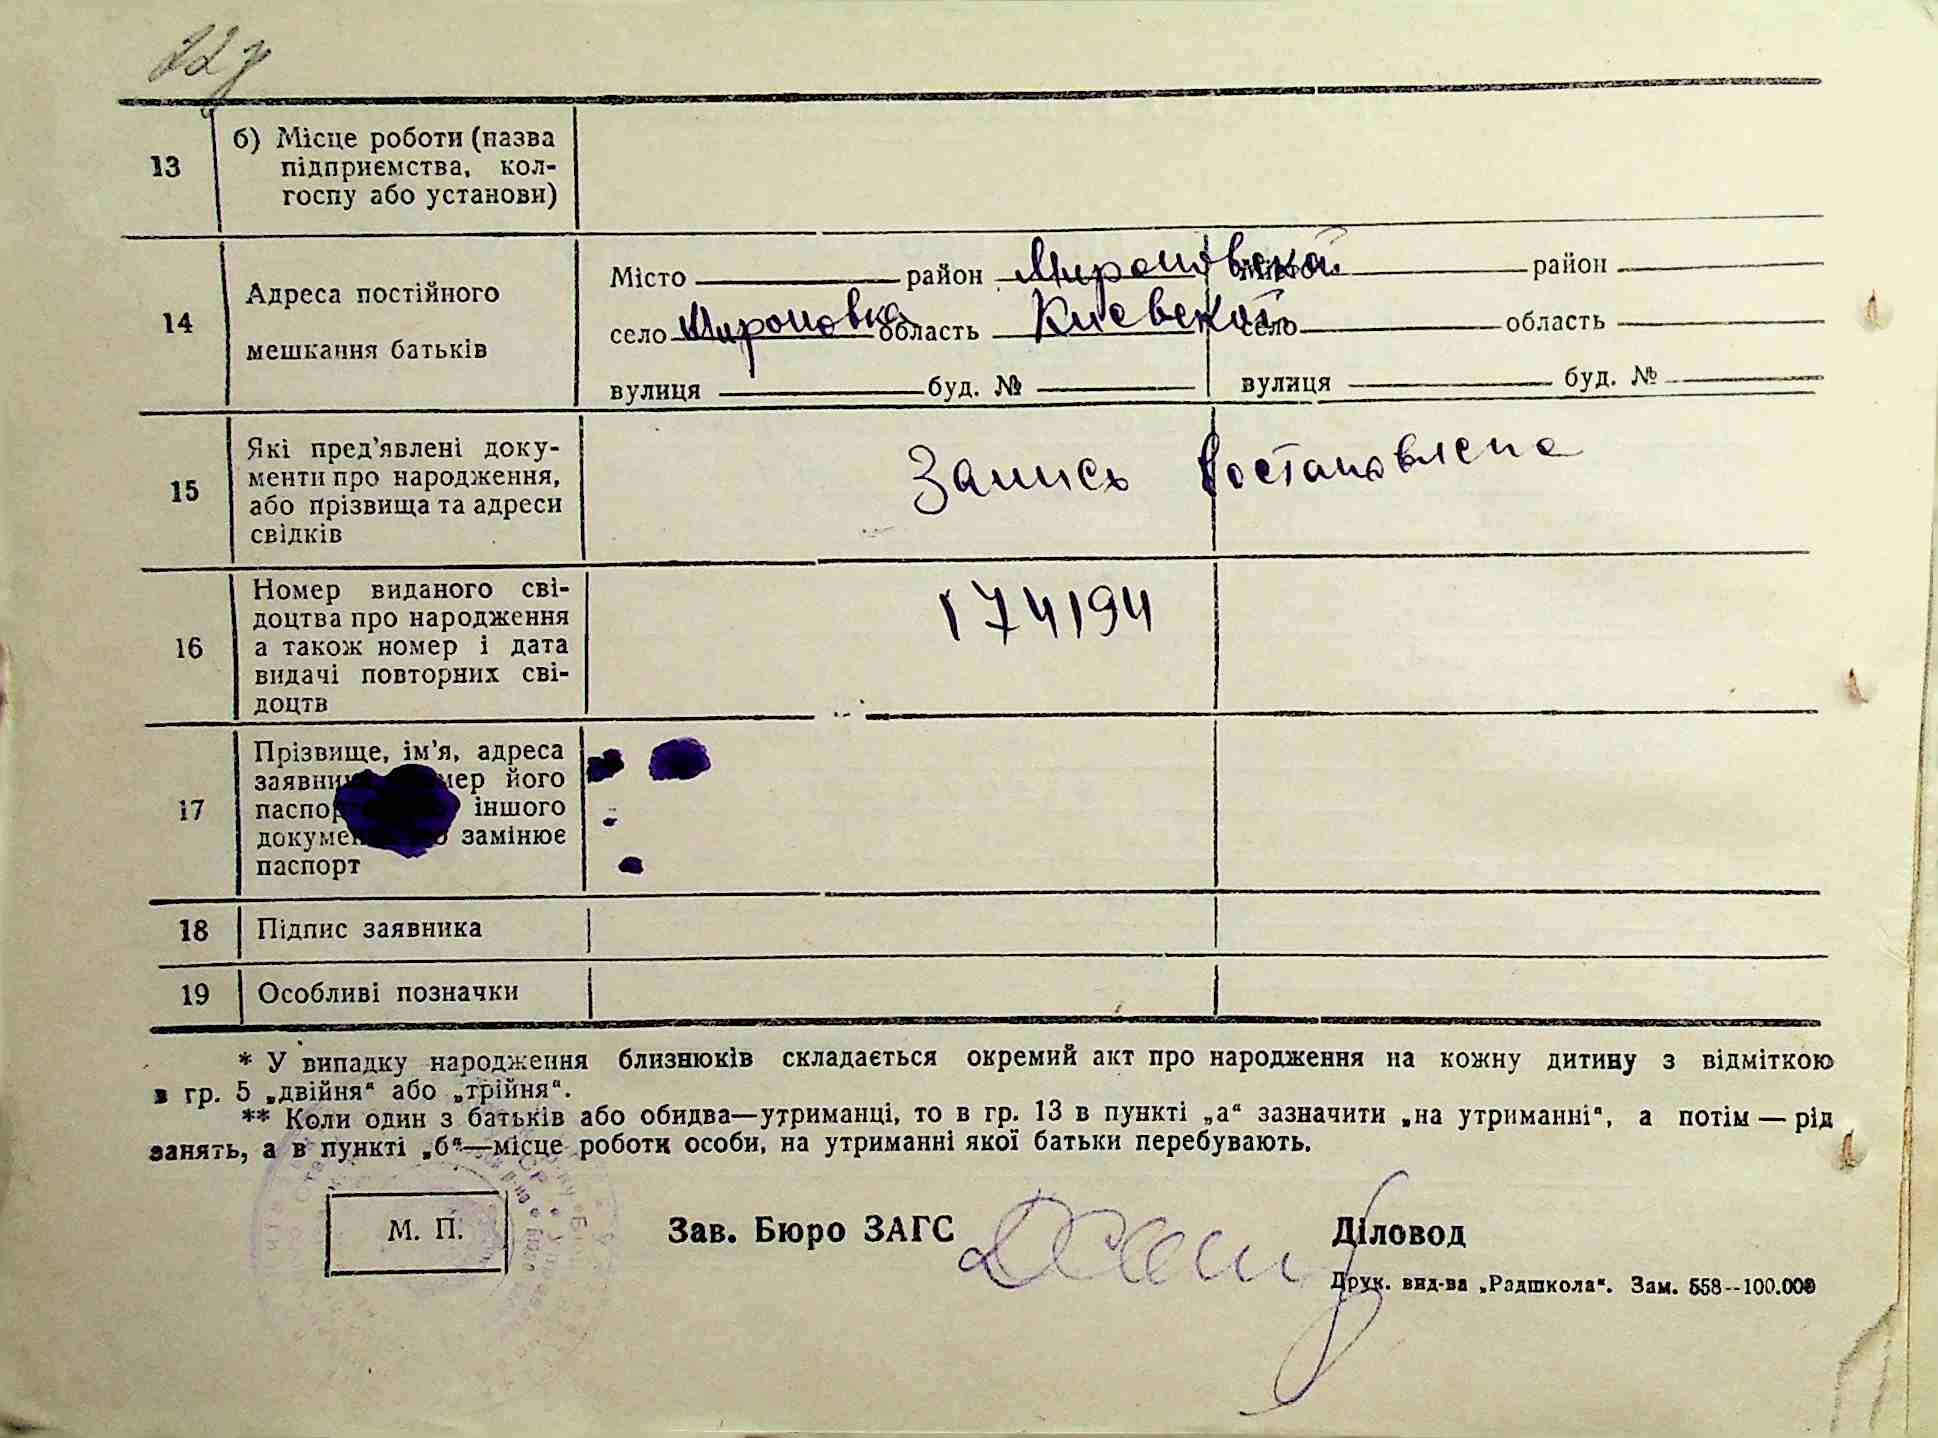 13
б) Місце роботи (назва
підприємства, кол-
госпу або установи)
14
Адреса постійного
мешкання батьків
Місто район Мироновской Місто район
село Мироновка область Киевской село область
вулиця буд. № вулиця буд. №
15
Які пред'явлені доку-
менти про народження,
або прізвища та адреси
свідків
Запись востановлена
16
Номер виданого сві-
доцтва про народження
а також номер і дата
видачі повторних сві-
доцтв
174194
17
Прізвище, ім'я, адреса
його
іншого
замінює
паспорт
18 Підпис заявника
19 Особливі позначки
* У випадку народження близнюків складається окремий акт про народження на кожну дитину з відміткою
в гр. 5 „двійня“ або „трійня“.
** Коли один з батьків або обидва—утриманці, то в гр. 13 в пункті „а“ зазначити „на утриманні“, а потім — рід
занять, а в пункті „б“—місце роботи особи, на утриманні якої батьки перебувають.
М. П.
Зав. Бюро ЗАГС
Діловод
Друк. вид-ва „Радшкола“. Зам. 558--100.000